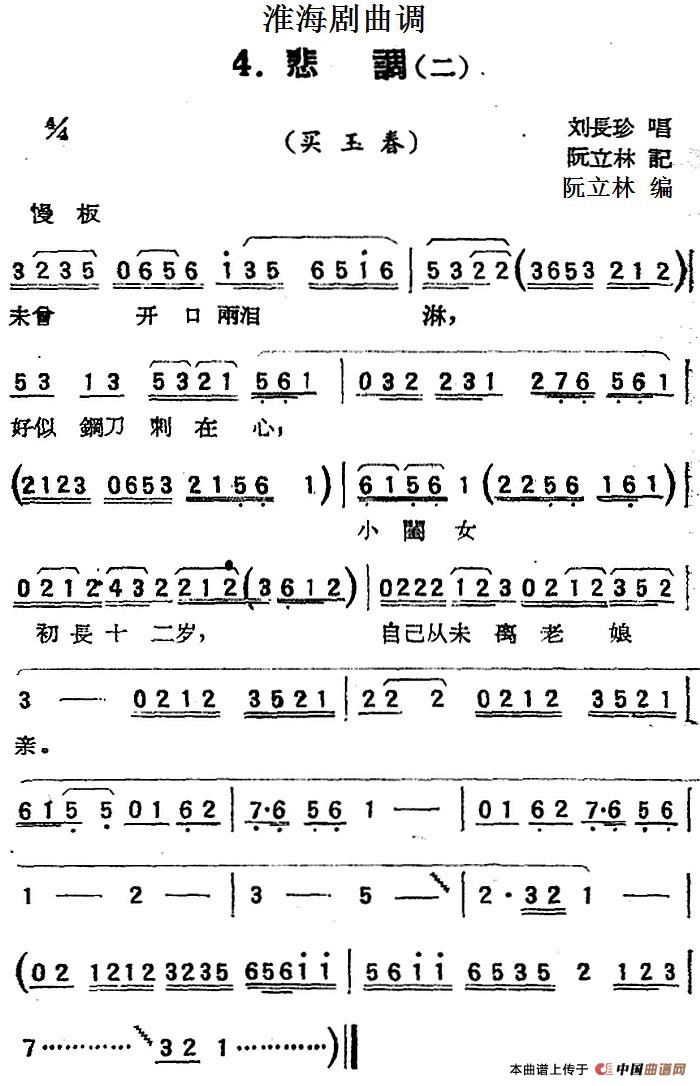 淮海剧曲调
4. 悲 調(二)
4/4
(买玉春)
刘長珍 唱
阮立林 記
阮立林 编
慢板
3235 0656 i35 65i6 | 5322 (3653 212) |
未曾 开口兩泪 淋,
53 13 5321 561 | 032 231 276 561 |
好似 鋼刀 刺在 心,
(2123 0653 2156 1) | 6156 1 (2256 161) |
小闺女
0212 432 212 (3612) | 0222 123 0212 352
初長十二岁, 自己从未离老娘
3 — 0212 3521 | 22 2 0212 3521
亲。
6155 0162 | 7·6 56 1 — | 0162 7·6 56
1 — 2 — | 3 — 5 — | 2·32 1 — |
(02 1212 3235 656ii | 56ii 6535 2 123
7………… 32 1…………)‖
本曲谱上传于 中国曲谱网